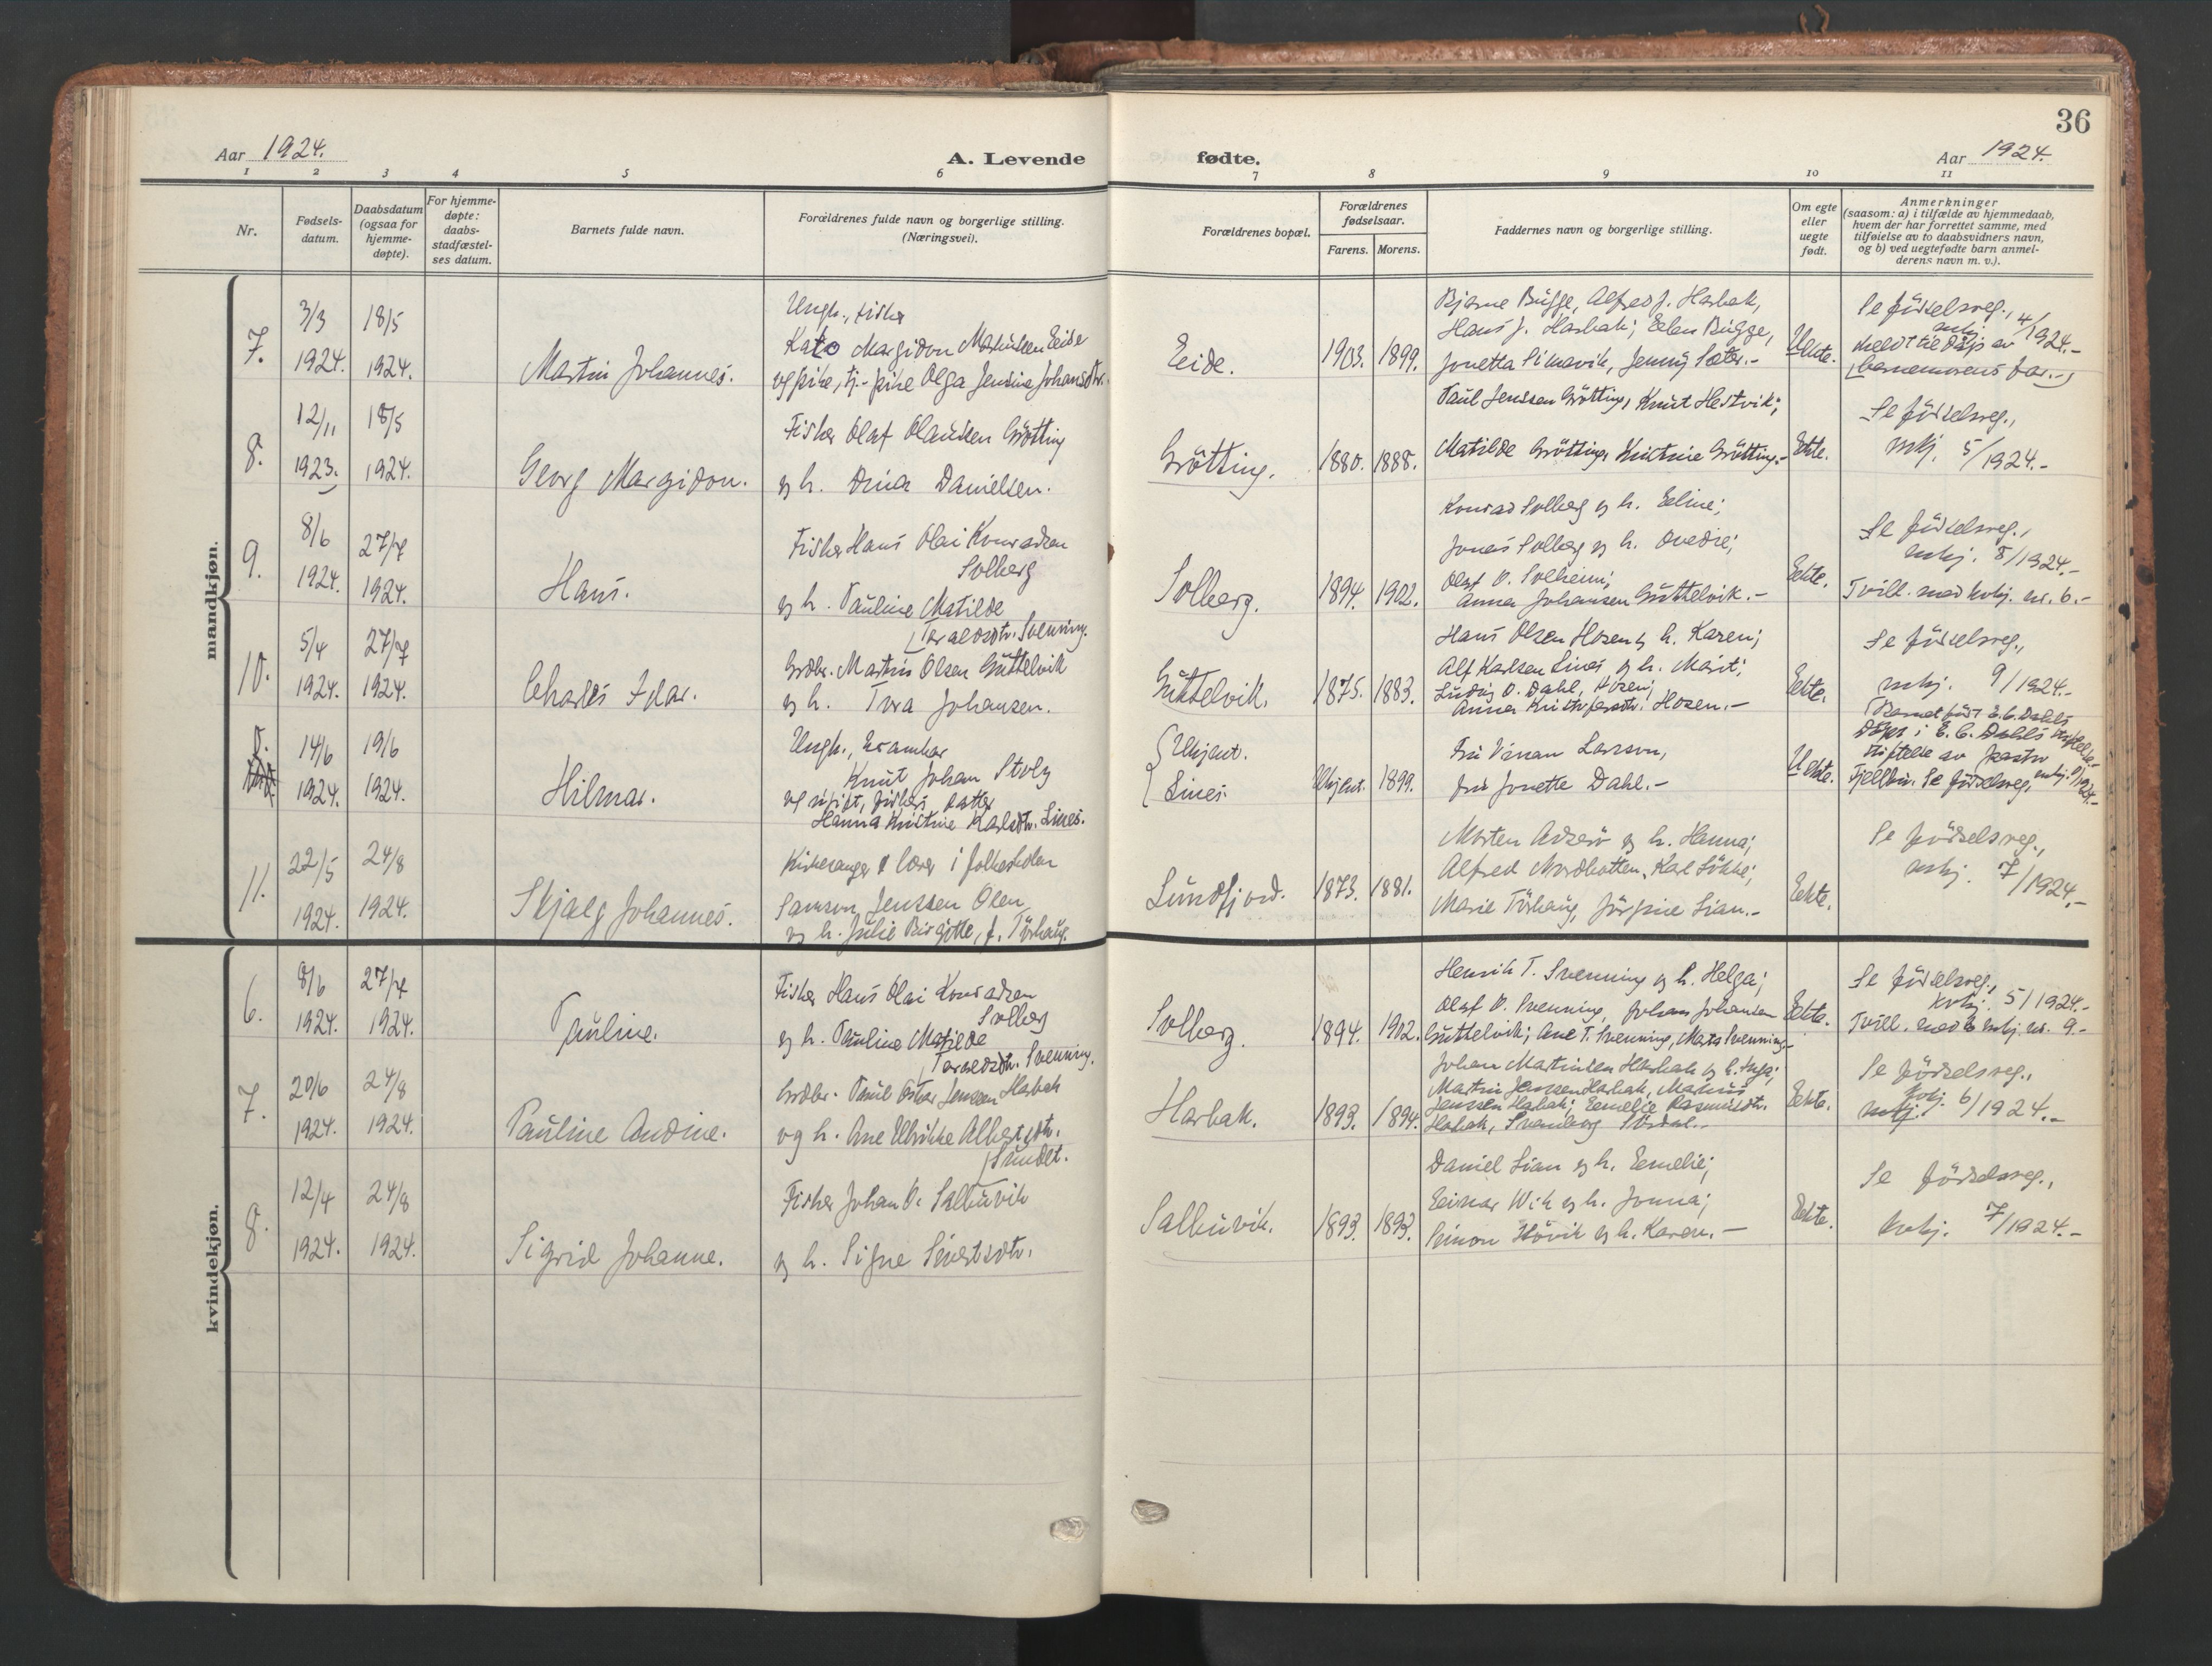 36
Aar 1924.
A. Levende
fødte.
Aar 1924.
1 2 3 4 5 6 7 8 9 10 11
Nr.
Fødsels-
datum.
Daabsdatum
(ogsaa for
hjemme-
døpte).
For hjemme-
døpte:
daabs-
stadfæstel-
ses datum.
Barnets fulde navn.
Forældrenes fulde navn og borgerlige stilling.
(Næringsvei).
Forældrenes bopæl.
Forældrenes
fødselsaar.
Farens. Morens.
Faddernes navn og borgerlige stilling.
Om egte
eller
uegte
født.
Anmerkninger
(saasom: a) i tilfælde av hjemmedaab,
hvem der har forrettet samme, med
tilføielse av to daabsvidners navn,
og b) ved uegtefødte barn anmel-
derens navn m. v.).
mandkjøn.
7.
3/3
1924.
18/5
1924.
Martin Johannes.
Ungk., fisker
Kato Margidon Eide
og pike, tj.-pike Olga Jensine Johansdtr.
Eide.
1903. 1899.
Bjarne Bugge, Alfred J. Harbak,
Hans J. Harbak; Ellen Bugge,
Jonetta, Jenny Sæter.-
Uekte.
Se födselsreg.,
mkj. 4/1924.-
meldt til dåp av
barnemorens far.-
8.
12/11
1923.
18/5
1924.
Georg Margidon.
Fisker Olaf Olausen Grötting
og h. Dina Danielsen.
Grötting.
1880. 1888.
Paul Jenssen Grötting, Knut Hestvik;
Matilde Grötting, Kristine Grötting.-
Ekte.
Se födselsreg.,
mkj. 5/1924.-
9.
8/6
1924.
27/7
1924.
Hans.
Fisker Hans Olai Konradsen
Solberg
og h. Pauline Matilde
Taraldsdtr. Svenning.
Solberg.
1894. 1902.
Konrad Solberg og h. Eline;
Jonas Solberg og h. Ovedie;
Olaf O. Solheim;
Anna Johansen Guttelvik.-
Ekte.
Se födselsreg.,
mkj. 8/1924.-
Tvill. med kvkj. nr. 6.-
10.
5/4
1924.
27/7
1924.
Charles Idar.
Grdbr. Martin Olsen Guttelvik
og h. Tora Johansen.
Guttelvik.
1875. 1883.
Hans Olsen Hosen og h. Karen;
Alf Karlsen Lines og h. Marit;
Ludvig O. Dahl, Hosen;
Anna Kristofersdtr. Hosen.-
Ekte.
Se födselsreg.,
mkj. 9/1924.-
14/6
1924.
19/6
1924.
Hilmar.
Ungk.,
Knut Johan Stoly
og ugift, fiskers datter
Hanna Kristine Karlsdtr. Lines.
Ukjent.
Lines.
Ukjent. 1899.
Fru Larsen,
fru Jonette Dahl.-
Uekte.
Barnet født E. C. Dahls
Döpt i E. C. Dahls
stiftelse av pastor
Se födselsreg. mkj.
11.
22/5
1924.
24/8
1924.
Skjalg Johannes.
Kirkesanger & lærer i folkeskolen
Samson Jenssen Olsen
og h. Julie Birgitte, f. Törhaug.
Sundfjord.
1873. 1881.
Morten Adserö og h. Hanna;
Alfred Nordbotten, Karl Lökke;
Marie Törhaug, Jörgine Lian.-
Ekte.
Se födselsreg.,
mkj. 7/1924.-
kvindekjøn.
6.
8/6
1924.
27/7
1924.
Pauline.
Fisker Hans Olai Konradsen
Solberg
og h. Pauline Matilde
Taraldsdtr. Svenning.
Solberg.
1894. 1902.
Henrik T. Svenning og h. Helga;
Olaf O. Svenning, Johan Johansen
Guttelvik; Ane T. Svenning, Marta Svenning.-
Ekte.
Se födselsreg.,
kvkj. 5/1924.-
Tvill. med mkj. nr. 9.-
7.
20/6
1924.
24/8
1924.
Pauline Andine.
Grdbr. Paul Oskar Jenssen Harbak
og h. Ane Ulrikke Albertsdtr.
Sundet.
Harbak.
1893. 1894.
Johan Martinsen Harbak og h. Inga;
Martin Jenssen Harbak, Marius
Jenssen Harbak; Emelie Rasmusdtr.
Harbak, Svanborg
Ekte.
Se födselsreg.,
kvkj. 6/1924.-
8.
12/4
1924.
24/8
1924.
Sigrid Johanne.
Fisker Johan O. Salbuvik
og h. Signe Sivertsdtr.
Salbuvik.
1893. 1893.
Daniel Lian og h. Emelie;
Einar Wik og h. Jonna;
Simon Hövik og h. Karen.-
Ekte.
Se födselsreg.,
kvkj. 7/1924.-